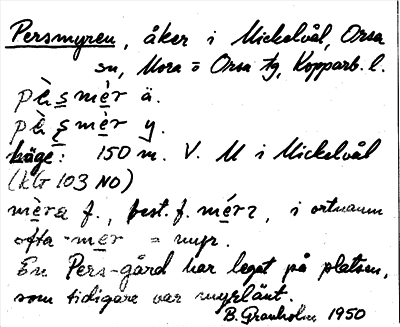 Persmyren, åker i Mickelvål, Orsa
sn, Mora o Orsa tg, Kopparb. l.
pæ̀ṣmèr ä.
pæ̀ṣmèr y.
Läge: 150 m. V. M i Mickelvål
(klr 103 NO)
mèra f., best. f. mérɩ, i ortnamn
ofta -mèr = myr.
En Pers-gård har legat på platsen,
som tidigare var myrlänt.
B. Granholm 1950